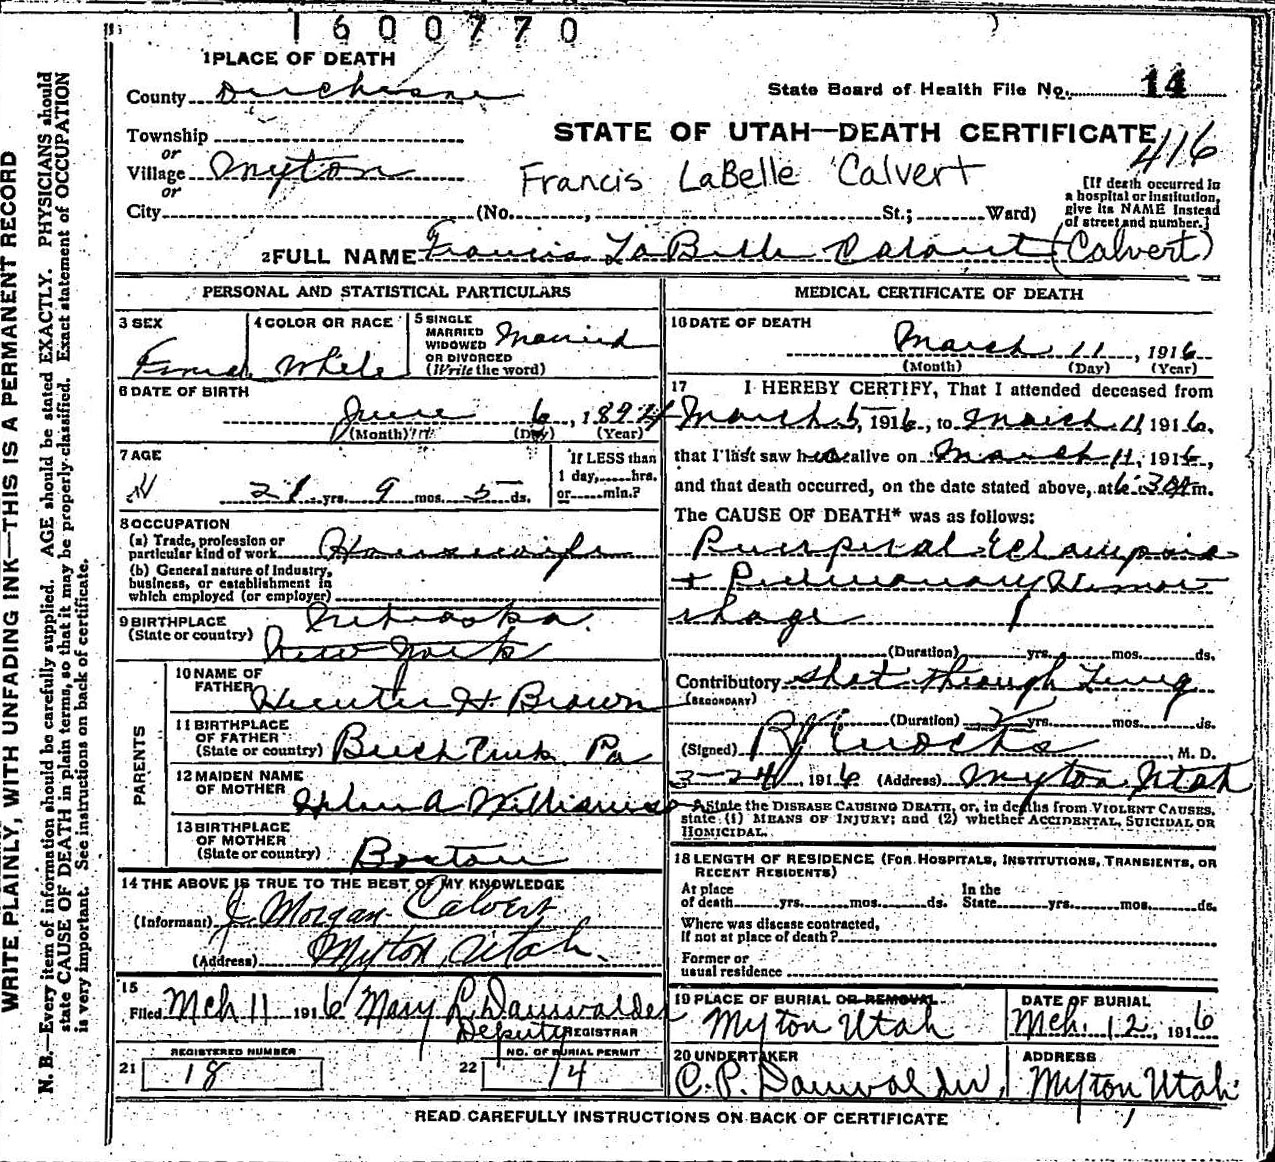 1600770
1 PLACE OF DEATH
County Duchesne
State Board of Health File No. 14
Township
or
STATE OF UTAH—DEATH CERTIFICATE
416
Village Myton
or
Francis LaBelle Calvert
[If death occurred in
a hospital or institution,
give its NAME instead
of street and number.]
City (No. , St.; Ward)
2 FULL NAME Francis La Belle Calvert (Calvert)
PERSONAL AND STATISTICAL PARTICULARS
3 SEX
Female
4 COLOR OR RACE
White
5 SINGLE
MARRIED
WIDOWED
OR DIVORCED
(Write the word)
Married
6 DATE OF BIRTH
June 6, 1894
(Month) (Day) (Year)
7 AGE
21 yrs. 9 mos. 5 ds.
If LESS than
1 day, hrs.
or min.?
8 OCCUPATION
(a) Trade, profession or
particular kind of work Housewife
(b) General nature of Industry,
business, or establishment in
which employed (or employer)
9 BIRTHPLACE
(State or country)
Nebraska.
New York
PARENTS
10 NAME OF
FATHER Hunter H. Brown
11 BIRTHPLACE
OF FATHER
(State or country) Pa
12 MAIDEN NAME
OF MOTHER A Williams
13 BIRTHPLACE
OF MOTHER
(State or country) Boston
14 THE ABOVE IS TRUE TO THE BEST OF MY KNOWLEDGE
(Informant) J. Morgan Calvert
(Address) Myton, Utah.
15
Filed Mch 11 1916 Mary L. Dauwalder
Deputy REGISTRAR
21 REGISTERED NUMBER
18
22 NO. OF BURIAL PERMIT
14
MEDICAL CERTIFICATE OF DEATH
16 DATE OF DEATH
March 11, 1916
(Month) (Day) (Year)
17 I HEREBY CERTIFY, That I attended deceased from
March 5, 1916, to March 11, 1916,
that I last saw her alive on March 11, 1916,
and that death occurred, on the date stated above, at 6:30 A m.
The CAUSE OF DEATH* was as follows:
Puerperal Eclampsia
+ Pulmonary Hemor
rhage
(Duration) yrs. mos. ds.
Contributory shot through Lung
(SECONDARY)
(Duration) 2 yrs. mos. ds.
(Signed) R J Enochs, M. D.
3-24, 1916 (Address) Myton, Utah
*State the DISEASE CAUSING DEATH, or, in deaths from VIOLENT CAUSES,
state (1) MEANS OF INJURY; and (2) whether ACCIDENTAL, SUICIDAL OR
HOMICIDAL.
18 LENGTH OF RESIDENCE (FOR HOSPITALS, INSTITUTIONS, TRANSIENTS, OR
RECENT RESIDENTS)
At place
of death yrs. mos. ds.
In the
State yrs. mos. ds.
Where was disease contracted,
If not at place of death?
Former or
usual residence
19 PLACE OF BURIAL OR REMOVAL
Myton Utah
DATE OF BURIAL
Mch. 12, 1916
20 UNDERTAKER
C. P. Dauwalder,
ADDRESS
Myton, Utah.
READ CAREFULLY INSTRUCTIONS ON BACK OF CERTIFICATE
WRITE PLAINLY, WITH UNFADING INK—THIS IS A PERMANENT RECORD
N. B.—Every item of information should be carefully supplied. AGE should be stated EXACTLY. PHYSICIANS should
state CAUSE OF DEATH in plain terms, so that it may be properly classified. Exact statement of OCCUPATION
is very important. See instructions on back of certificate.